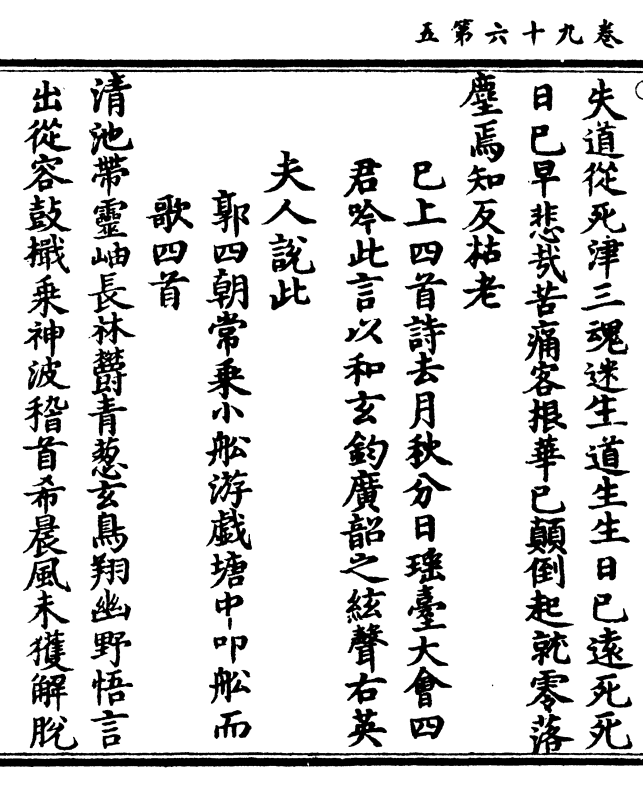 卷九十六第五
失道從死津三魂迷生道生生日已遠死死
日已早悲哉苦痛客根華已顛倒起就零落
塵焉知反枯老
已上四首詩去月秋分日瑶臺大會四
君吟此言以和玄鈞廣韶之絃聲右英
夫人說此
郭四朝常乘小船游戲塘中叩船而
歌四首
清池帶靈岫長林鬱青葱玄鳥翔幽野悟言
出從容鼓檝乘神波稽首希晨風未獲解脫